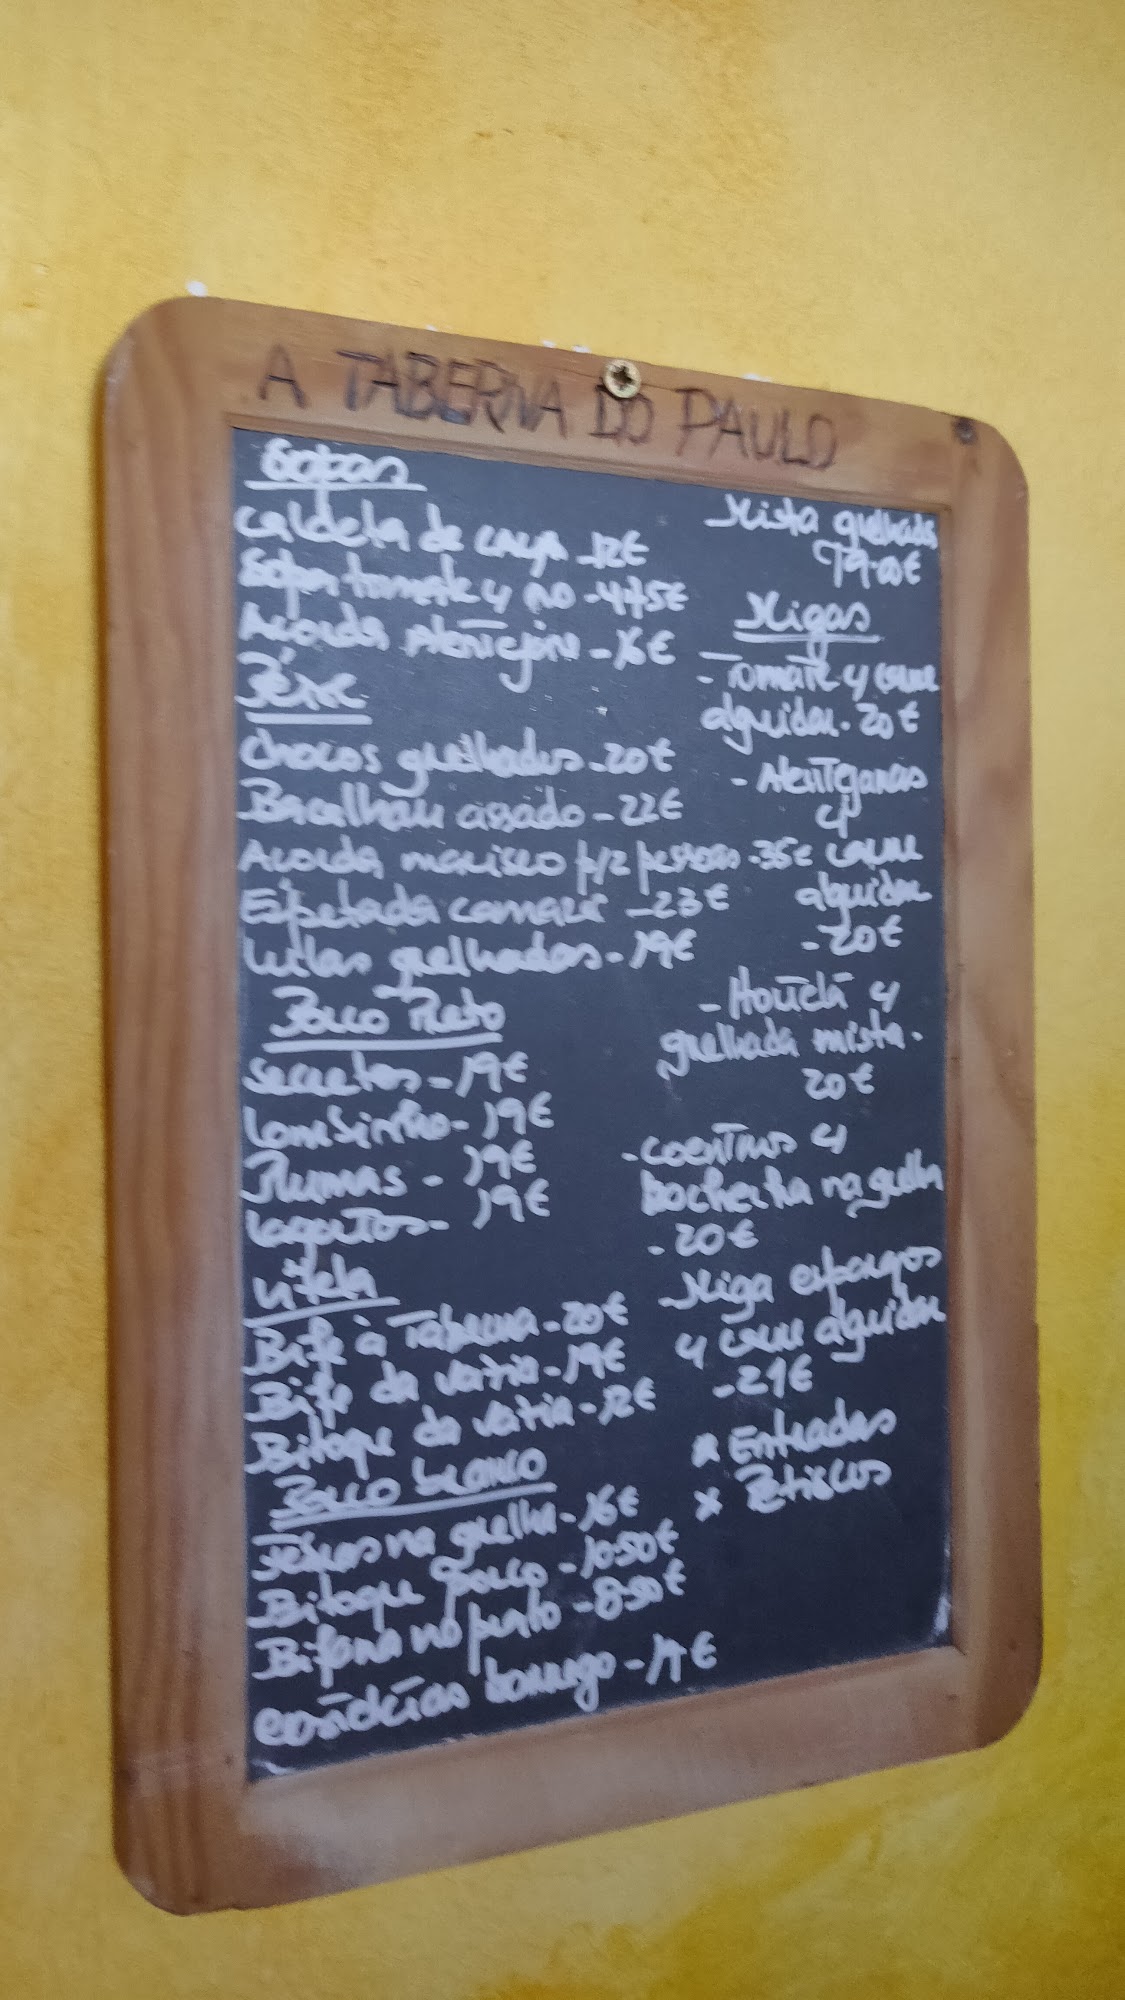 A TABERNA DO PAULO
Sopas
Caldeta de caça - 12€
Sopa tomate c/ - 4.75€
Açorda Alentejana - 16€
Peixe
Chocos grelhados - 20€
Bacalhau assado - 22€
Açorda marisco p/2 pessoas - 35€
Espetada camarão - 23€
Lulas grelhadas - 19€
Porco Preto
Secretos - 19€
Lombinho - 19€
Plumas - 19€
Lagartos - 19€
Vitela
Bife à Taberna - 20€
Bife da vazia - 19€
Bitoque da vazia - 12€
Porco branco
na grelha - 16€
Bitoque Porco - 10.50€
Bifana no prato - 8.50€
borrego - €
Mista grelhada
19.00€
Migas
- Tomate c/ carne
alguidar - 20€
- Alentejanas
c/
carne
alguidar
- 20€
- Hortelã c/
grelhada mista -
20€
- Coentros c/
bochecha na grelha
- 20€
- Miga espargos
c/ carne alguidar
- 21€
x Entradas
x Petiscos